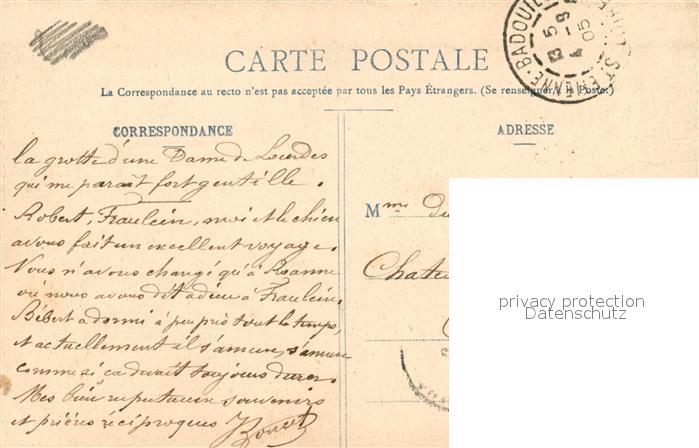 CARTE POSTALE
La Correspondance au recto n'est pas acceptée par tous les Pays Étrangers. (Se renseigner à la Poste.)
CORRESPONDANCE
ADRESSE
ST ETIENNE-BADOUIL
5
-9
05
LOIRE
la grotte d'une Dame de Lourdes
qui me paraît fort gentille.
Robert, Fraulein, moi et le chien
avons fait un excellent voyage.
Nous n'avons changé qu'à Roanne
où nous avons dit adieu à Fraulein.
Bébert a dormi à peu près tout le temps,
et actuellement il s'amuse, s'amuse
comme si ça devait toujours durer.
Mes bien respectueux souvenirs
et prières réciproques
Mme du
Chateu
privacy protection
Datenschutz